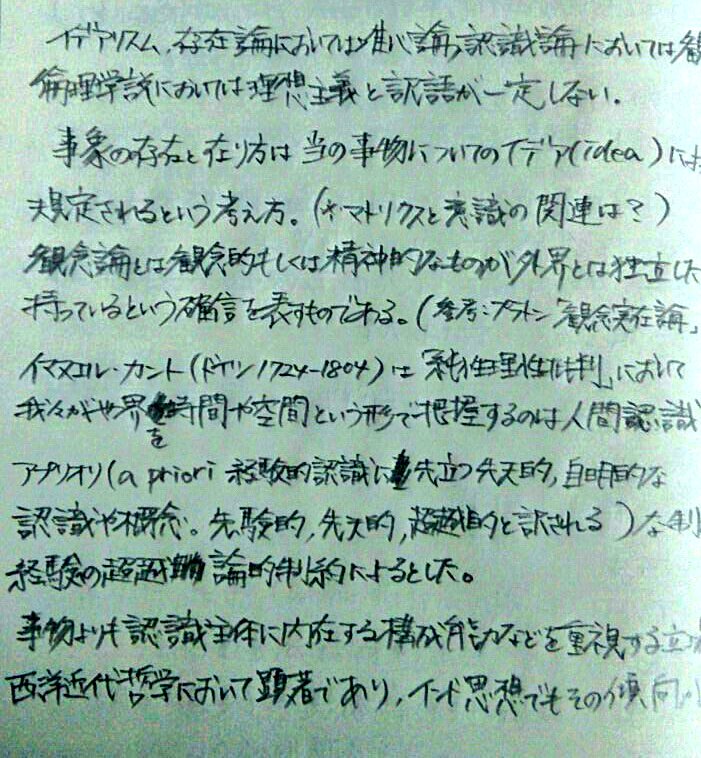 イデアリスム、存在論においては唯心論、認識論においては観
倫理学説においては理想主義と訳語が一定しない。
事象の存在と在り方は当の事物についてのイデア(idea)によ
規定されるという考え方。(マトリクスと意識の関連は?)
観念論とは観念的もしくは精神的なものが外界とは独立した
持っているという確信を表すものである。(参考:プラトン「観念実在論」
イマヌエル・カント(ドイツ1724-1804)は「純粋理性批判」において
我々が世界を時間や空間という形で把握するのは人間認識
アプリオリ(a priori 経験的認識に先立つ先天的,自明的な
認識や概念。先験的,先天的,超越的と訳される)な制
経験の超越論的制約によるとした。
事物よりも認識主体に内在する構成能力などを重視する立場
西洋近代哲学において顕著であり,インド思想でもその傾向が